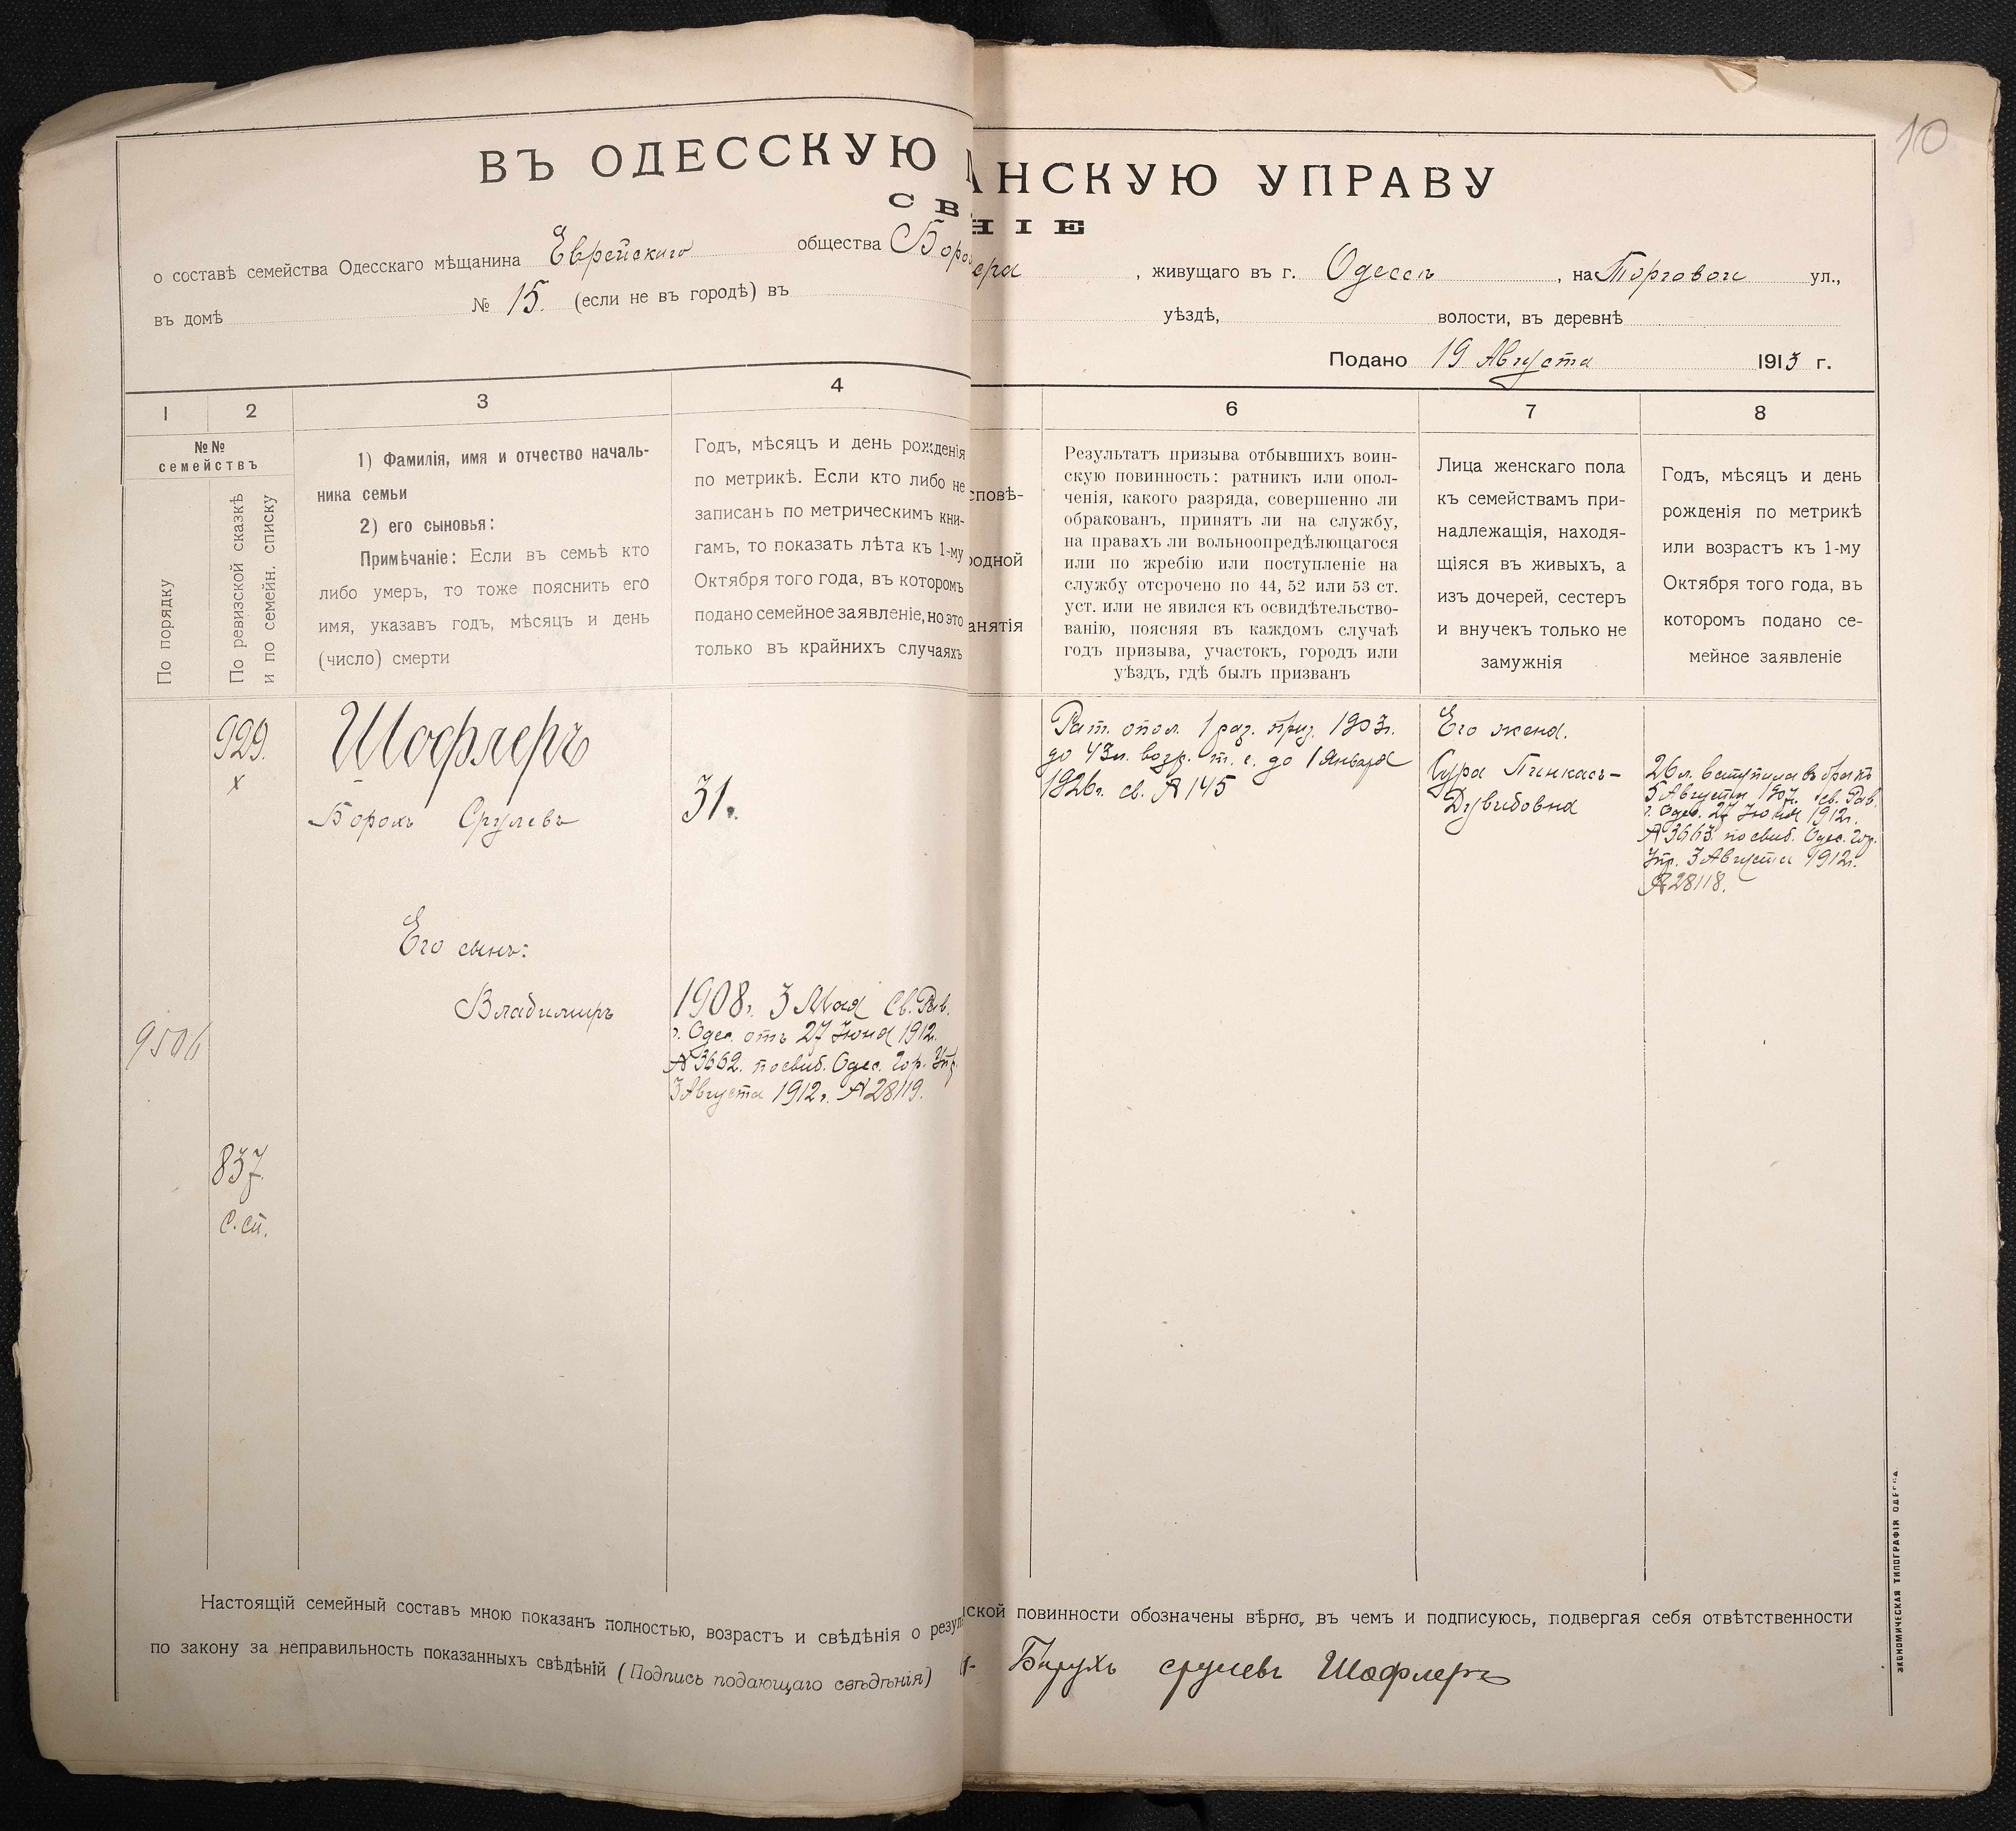 10
ВЪ ОДЕССКУЮ АНСКУЮ УПРАВУ
СВ НІЕ
о составѣ семейства Одесскаго мѣщанина Еврейскаго общества Боро ера , живущаго въ г. Одессѣ , на Торговой ул.,
въ домѣ № 15. (если не въ городѣ) въ уѣздѣ, волости, въ деревнѣ
Подано 19 Августа 1913 г.
1 2 3 4 6 7 8
№№ семействъ
По порядку
По ревизской сказкѣ
и по семейн. списку
1) Фамилія, имя и отчество началь-
ника семьи
2) его сыновья:
Примѣчаніе: Если въ семьѣ кто
либо умеръ, то тоже пояснить его
имя, указавъ годъ, мѣсяцъ и день
(число) смерти
Годъ, мѣсяцъ и день рожденія
по метрикѣ. Если кто либо не
записанъ по метрическимъ кни-
гамъ, то показать лѣта къ 1-му
Октября того года, въ которомъ
подано семейное заявленіе, но это
только въ крайнихъ случаяхъ
сповѣ-
родной
анятія
Результатъ призыва отбывшихъ воин-
скую повинность: ратникъ или опол-
ченія, какого разряда, совершенно ли
обракованъ, принятъ ли на службу,
на правахъ ли вольноопредѣлющагося
или по жребію или поступленіе на
службу отсрочено по 44, 52 или 53 ст.
уст. или не явился къ освидѣтельство-
ванію, поясняя въ каждомъ случаѣ
годъ призыва, участокъ, городъ или
уѣздъ, гдѣ былъ призванъ
Лица женскаго пола
къ семействамъ при-
надлежащія, находя-
щіяся въ живыхъ, а
изъ дочерей, сестеръ
и внучекъ только не
замужнія
Годъ, мѣсяцъ и день
рожденія по метрикѣ
или возрастъ къ 1-му
Октября того года, въ
которомъ подано се-
мейное заявленіе
929.
х
Шофлеръ
Борохъ Срулевъ
31.
Рат. опол. 1 раз. приз. 1903г.
до 43л. возр. т. е. до 1 Января
1926г. св. № 145
Его жена.
Сура Пинкасъ-
Дувидовна
26 л. вступила въ бракъ
5 Августа 1907. св. Рав.
г. Одес. 27 Іюня 1912г.
№ 3663. по свид. Одес. Гор.
Упр. 3 Августа 1912г.
№ 28118.
Его сынъ:
Владимиръ
1908г. 3 Мая Св. Рав.
г. Одес. отъ 27 Іюня 1912.
№ 3662. по свид. Одес. Гор. Упр.
3 Августа 1912г. № 28119.
9506
837.
С. сп.
Настоящій семейный составъ мною показанъ полностью, возрастъ и свѣдѣнія о резул ской повинности обозначены вѣрно, въ чемъ и подписуюсь, подвергая себя отвѣтственности
по закону за неправильность показанныхъ свѣдѣній (Подпись подающаго свѣдѣнія) Борухъ срулевъ Шофлеръ
ЭКОНОМИЧЕСКАЯ ТИПОГРАФІЯ ОДЕССА.